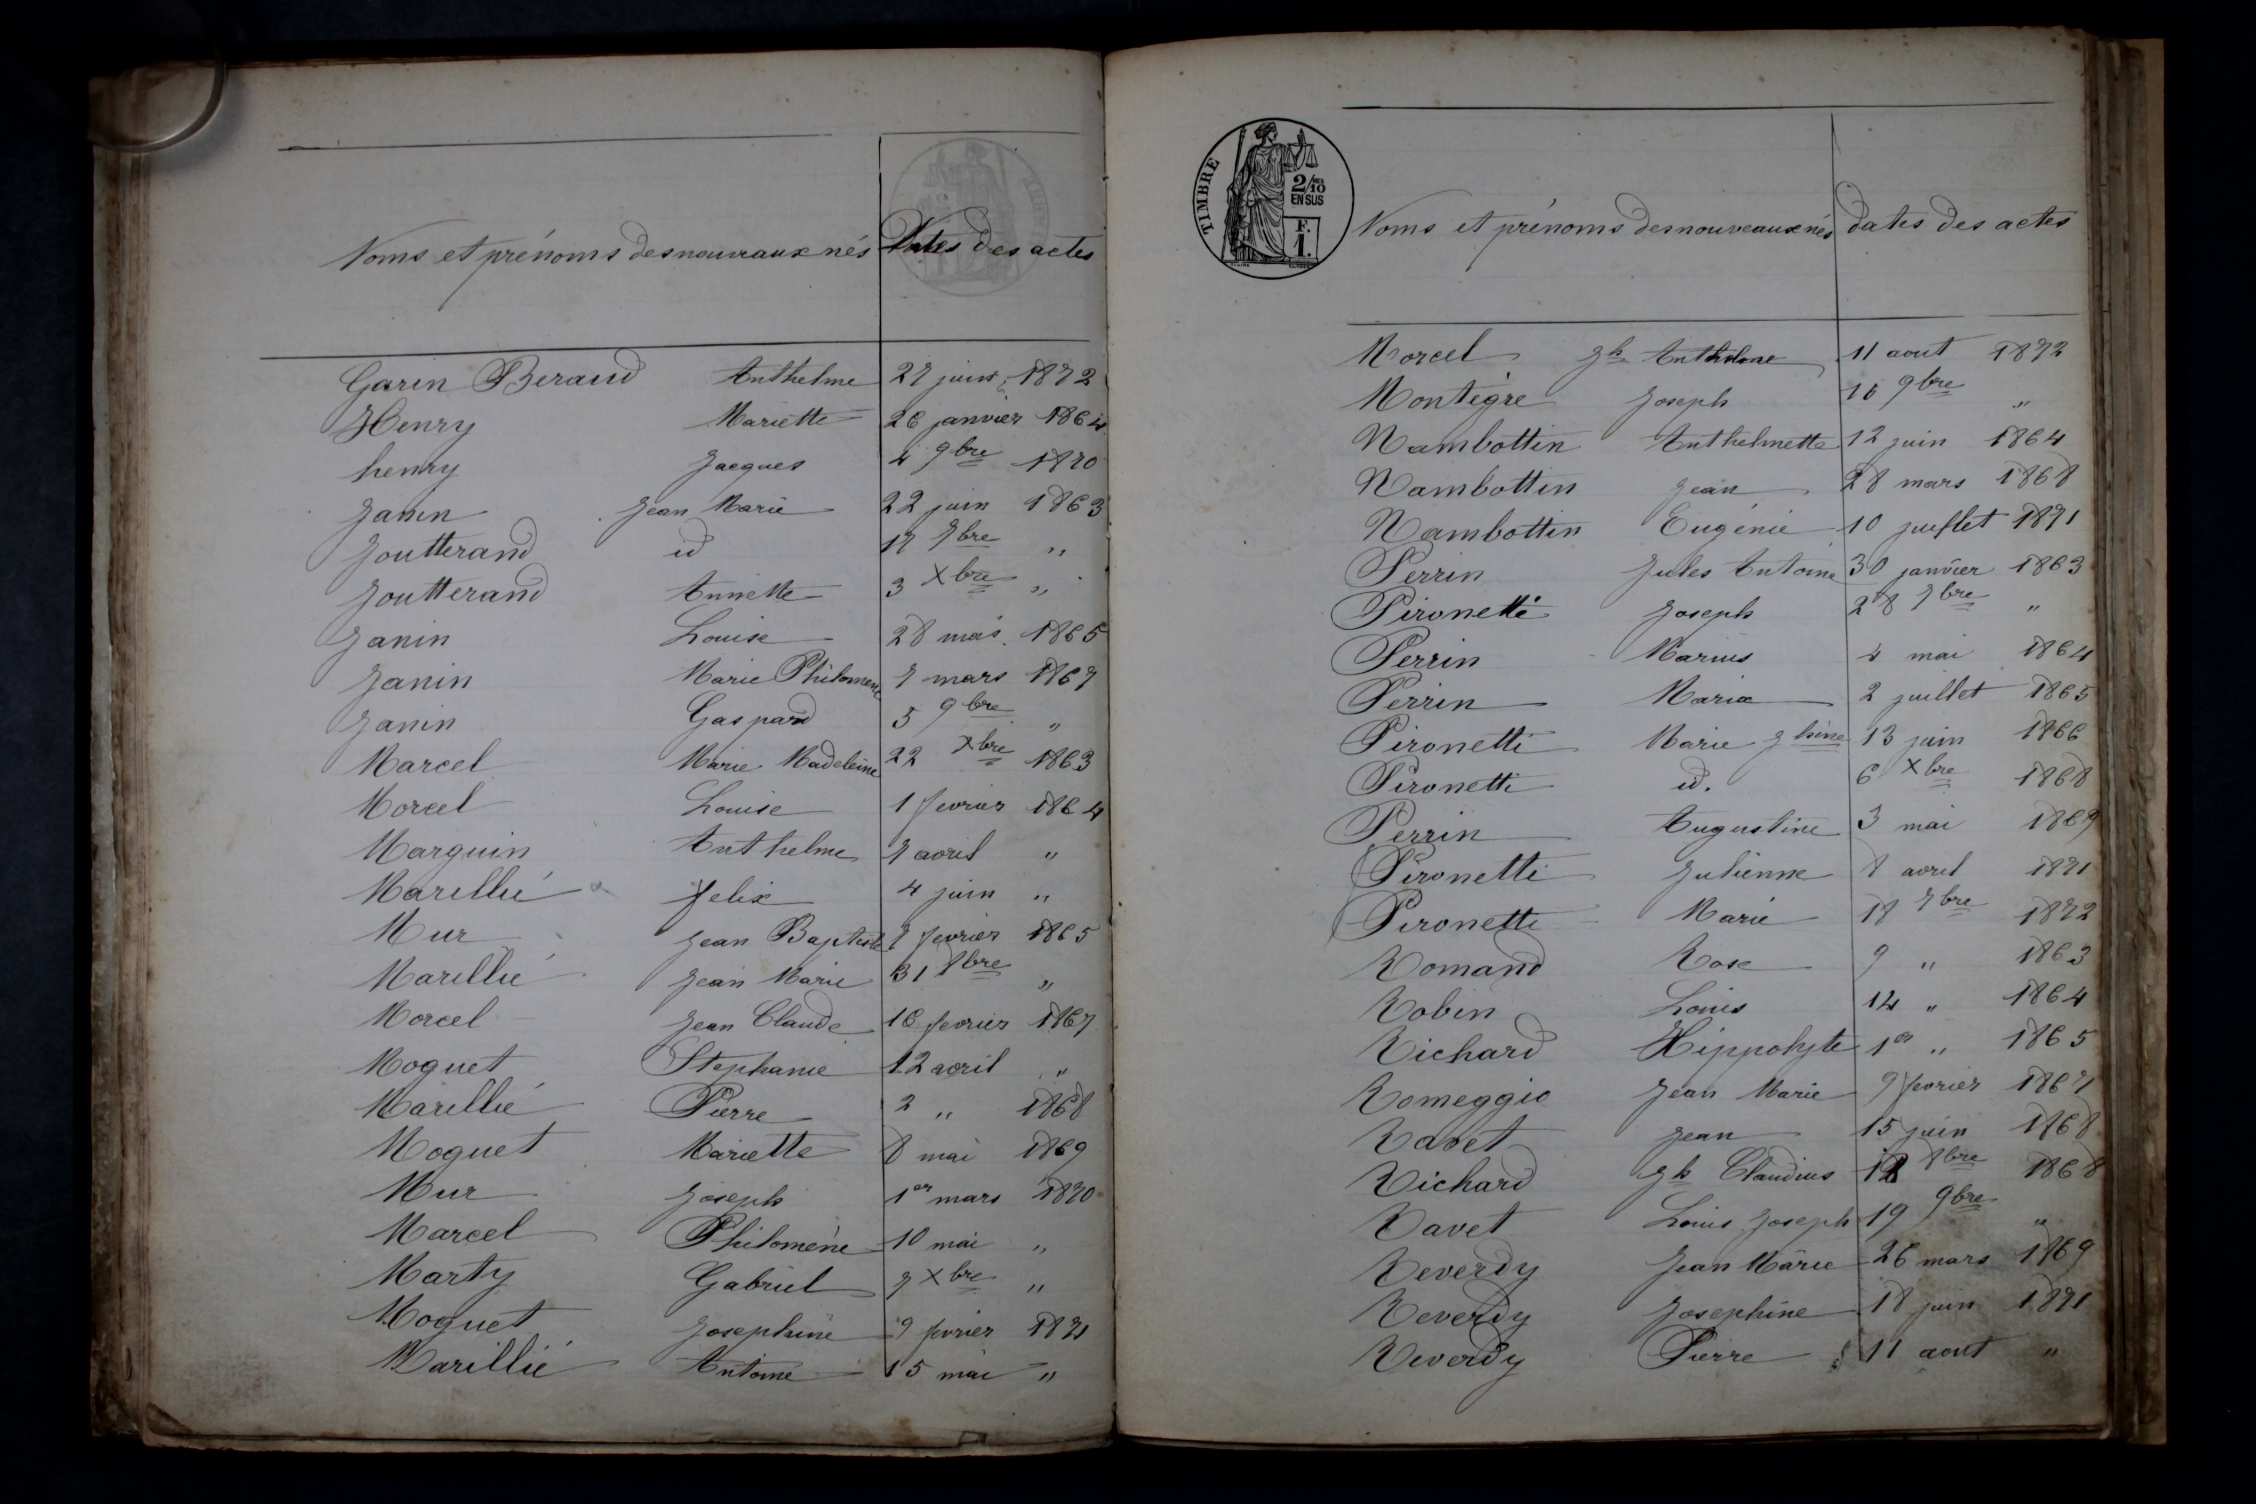 Noms et prénoms des nouveaux nés Dates des actes
Garin Beraud Anthelme 27 juin 1872
Henry Mariette 26 janvier 1864
henry Jacques 4 9bre 1870
Janin Jean Marie 22 juin 1863
Joutterand id 17 7bre "
Joutterand Annette 3 Xbre "
Janin Louise 28 mai 1865
Janin Marie Philomene 7 mars 1867
Janin Gaspard 5 9bre "
Marcel Marie Madeleine 22 Xbre 1863
Morcel Louise 1 fevrier 1864
Marguin Anthelme 7 avril "
Marillié felix 4 juin "
Mur Jean Baptiste 7 fevrier 1865
Marillié Jean Marie 31 8bre "
Morcel Jean Claude 16 fevrier 1867
Moguet Stephanie 12 avril "
Marillié Pierre 2 " 1868
Moguet Mariette 8 mai 1869
Mur Joseph 1er mars 1870
Marcel Philomène 10 mai "
Marty Gabriel 7 Xbre "
Moguet Josephine 9 fevrier 1871
Marillié Antoine 15 mai "
TIMBRE
2/10
EN SUS
F.
1.
Noms et prénoms des nouveaux nés dates des actes
Morcel Jh Anthelme 11 aout 1872
Montégre Joseph 16 9bre "
Nambottin Anthelmette 12 juin 1864
Nambottin Jean 28 mars 1868
Nambottin Eugénie 10 juillet 1871
Perrin Jules Antoine 30 janvier 1863
Pironetti Joseph 28 7bre "
Perrin Marius 4 mai 1864
Perrin Maria 2 juillet 1865
Pironetti Marie Jhine 13 juin 1866
Pironetti id. 6 Xbre 1868
Perrin Augustine 3 mai 1869
Pironetti Julienne 8 avril 1871
Pironetti Marie 18 7bre 1872
Romand Rose 9 " 1863
Robin Louis 14 " 1864
Richard Hippolyte 1er " 1865
Romeggio Jean Marie 9 fevrier 1867
Ravet Jean 15 juin 1868
Richard Jh Claudius 12 8bre 1868
Ravet Louis Joseph 19 9bre "
Reverdy Jean Marie 26 mars 1869
Reverdy Josephine 18 juin 1871
Reverdy Pierre 11 aout "